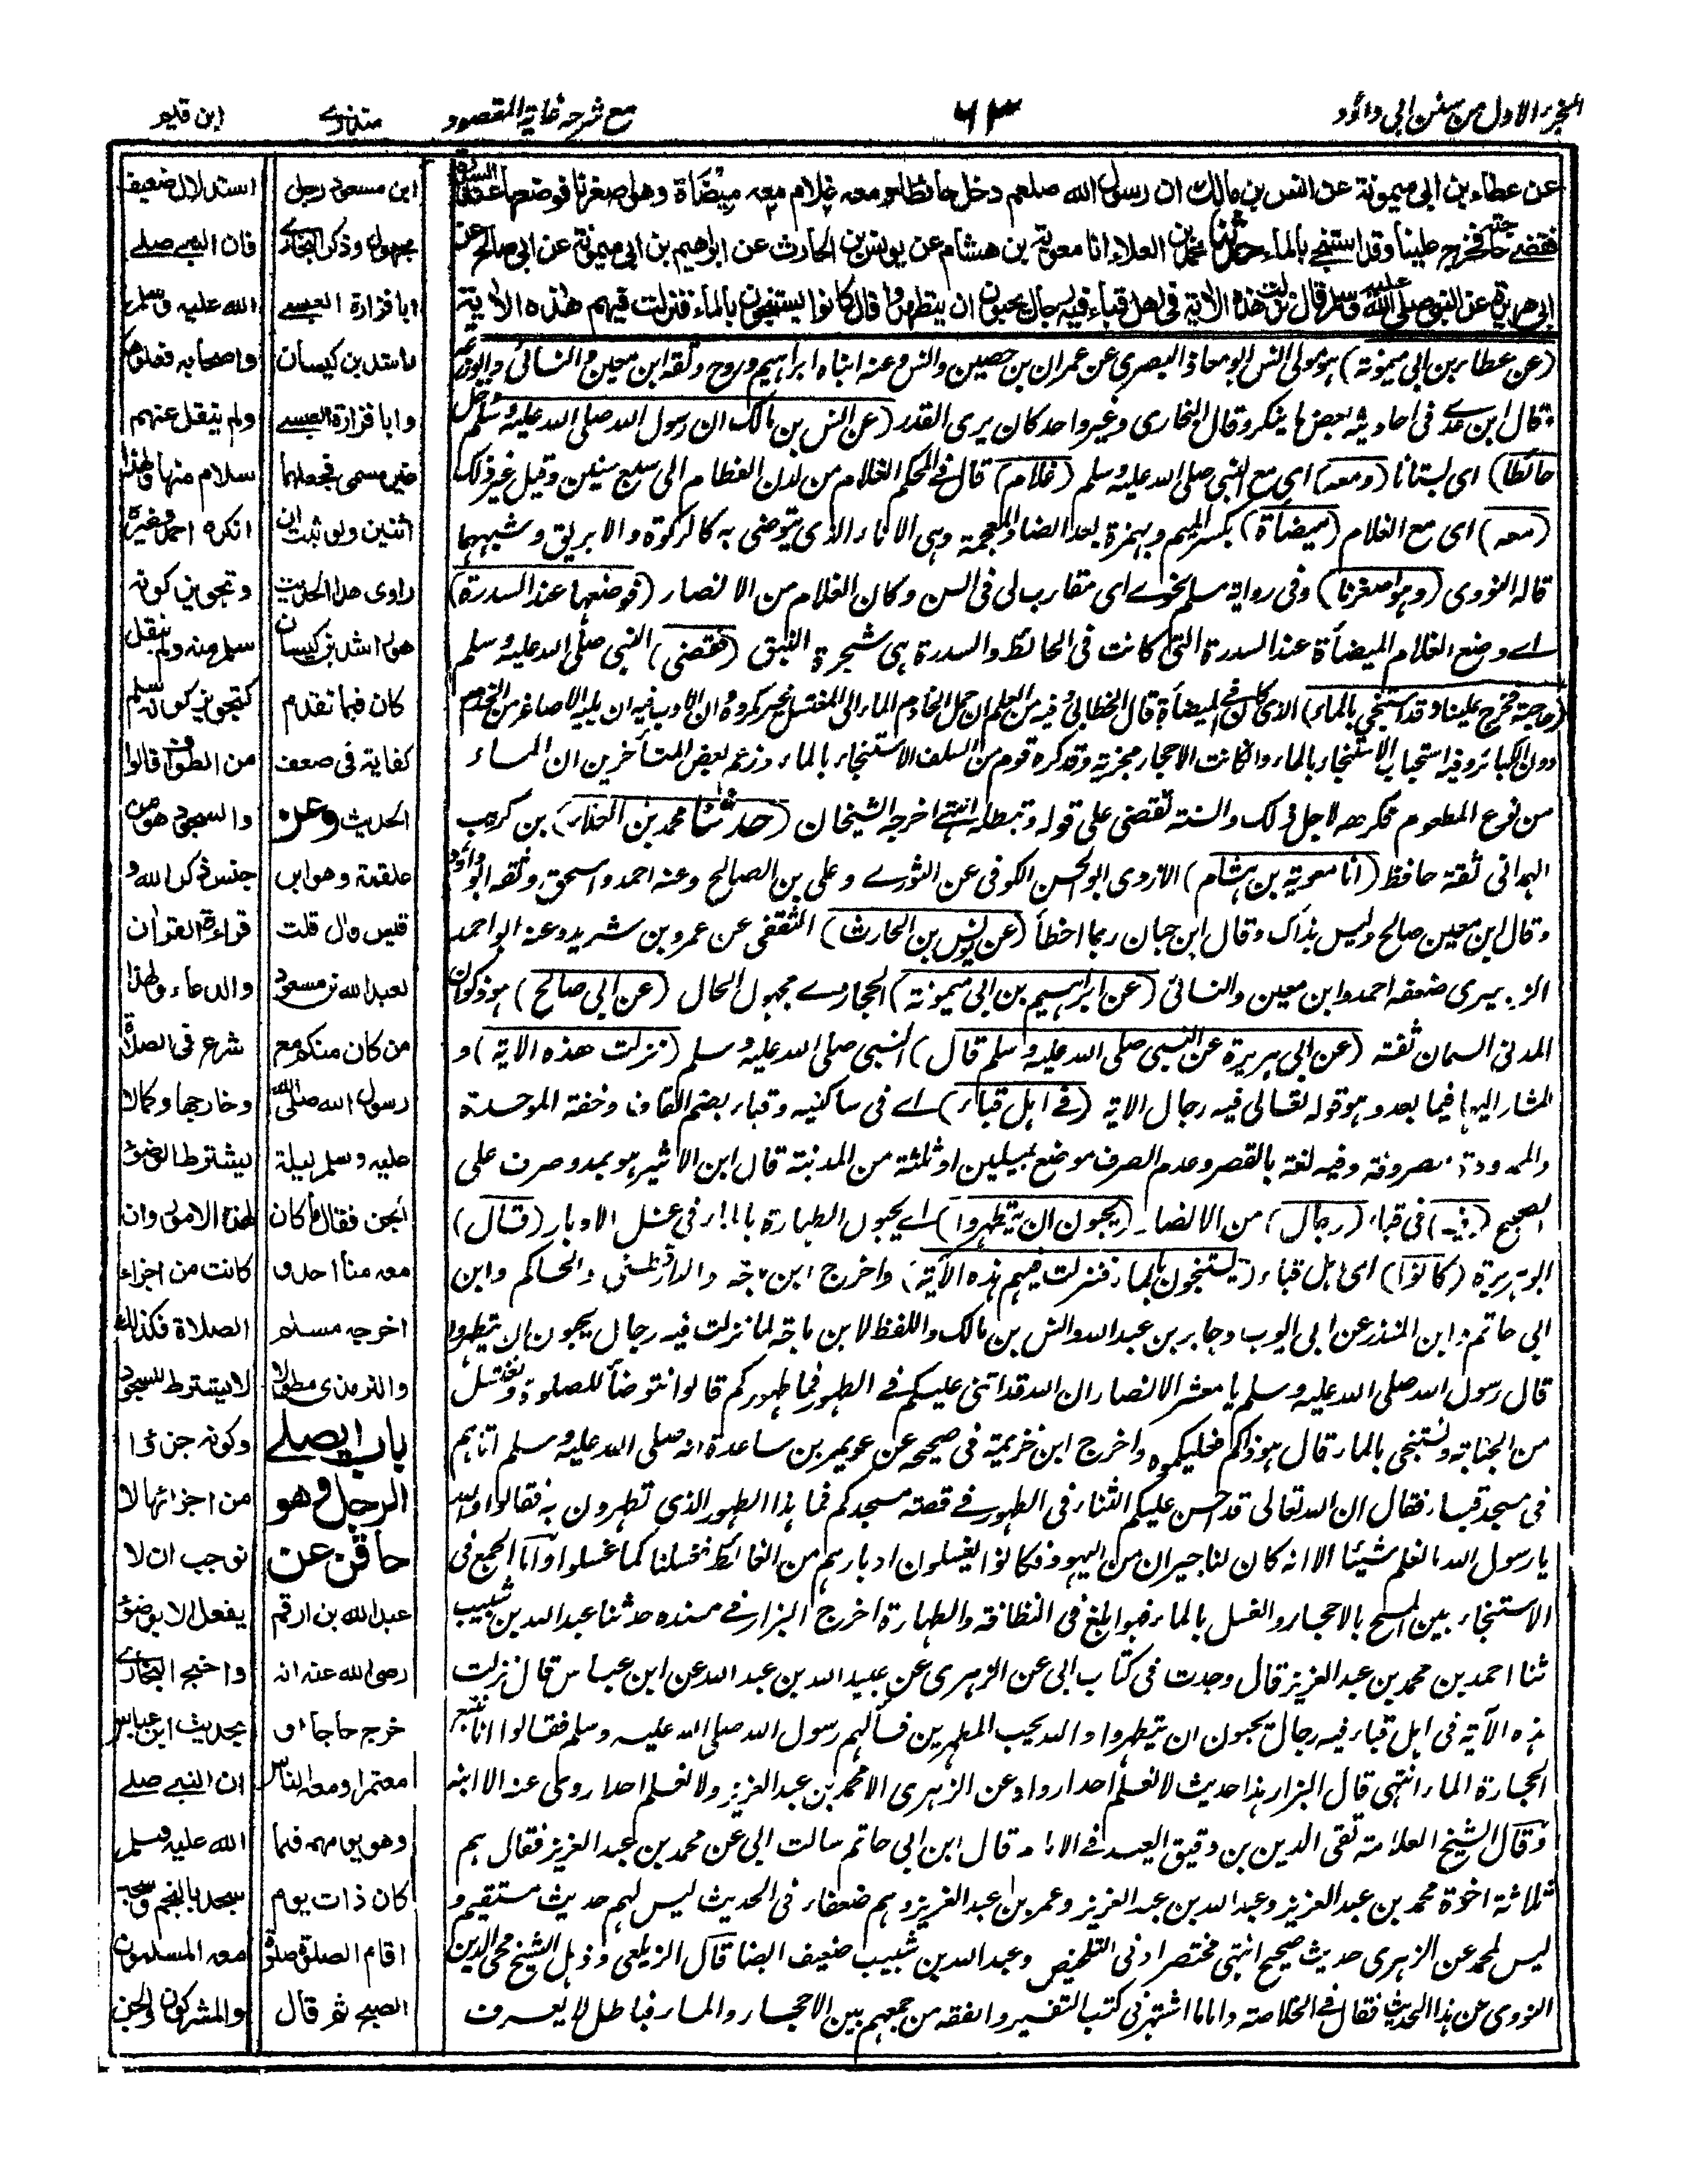 الجزء الاول من سنن ابى داؤد
٦٣
مع شرحه غاية المقصود
منذرى
ابن قيم
عن عطاء بن ابى ميمونة عن انس بن مالك ان رسول الله صلعم دخل حائطا ومعه غلام معه ميضأة وهو اصغرنا فوضعها عند السدرة
فقضى حاجته فخرج علينا وقد استنجى بالماء حدثنا محمد بن العلاء انا معوية بن هشام عن يونس بن الحارث عن ابراهيم بن ابى ميمونة عن ابى صالح عن
ابى هريرة عن النبى صلى الله عليه وسلم قال نزلت هذه الاية فى اهل قباء فيه رجال يحبون ان يتطهروا قال كانوا يستنجون بالماء فنزلت فيهم هذه الاية
(عن عطاء بن ابى ميمونة) هو مولى انس ابو معاذ البصرى عن عمران بن حصين وانس وعنه ابناه ابراهيم وروح وثقه ابن معين والنسائى وابو زرعة
قال ابن عدى فى احاديثه بعض ما ينكر وقال البخارى وغير واحد كان يرى القدر (عن انس بن مالك ان رسول الله صلى الله عليه وسلم دخل
حائطا) اى بستانا (ومعه) اى مع النبى صلى الله عليه وسلم (غلام) قال فى المحكم الغلام من لدن الفطام الى سبع سنين وقيل غير ذلك
(معه) اى مع الغلام (ميضأة) بكسر الميم وبهمزة بعد الضاد المعجمة وهى الاناء الذى يتوضى به كالركوة والابريق وشبههما
قاله النووى (وهو اصغرنا) وفى رواية مسلم نحوى اى مقارب لى فى السن وكان الغلام من الانصار (فوضعها عند السدرة)
اى وضع الغلام الميضأة عند السدرة التى كانت فى الحائط والسدرة هى شجرة النبق (فقضى) النبى صلى الله عليه وسلم
(حاجته فخرج علينا وقد استنجى بالماء) الذى كان فى الميضأة قال الخطابى وفيه من العلم ان حمل الخادم الماء الى المغتسل غير مكروه وان الادب فيه ان يليه الاصاغر من الخدم
دون الكبار وفيه استحباب الاستنجاء بالماء وان كانت الاحجار مجزية وقد كره قوم من السلف الاستنجاء بالماء وزعم بعض المتأخرين ان الماء
من نوع المطعوم فكرهه لاجل ذلك والسنة تقضى على قوله وتبطله انتهى اخرجه الشيخان (حدثنا محمد بن العلاء) بن كريب
الهمدانى ثقة حافظ (انا معوية بن هشام) الازدى ابو الحسن الكوفى عن الثورى وعلى بن الصالح وعنه احمد واسحق وثقه ابو داؤد
وقال ابن معين صالح وليس بذاك وقال ابن حبان ربما اخطأ (عن يونس بن الحارث) الثقفى عن عمرو بن شريد وعنه ابو احمد
الزبيرى ضعفه احمد وابن معين والنسائى (عن ابراهيم بن ابى ميمونة) الحجازى مجهول الحال (عن ابى صالح) هو ذكوان
المدنى السمان ثقة (عن ابى هريرة عن النبى صلى الله عليه وسلم قال) النبى صلى الله عليه وسلم (نزلت هذه الاية) و
المشار اليها فيما بعد وهو قوله تعالى فيه رجال الاية (فى اهل قباء) اى فى ساكنيه وقباء بضم القاف وخفة الموحدة
والممدودة مصروفة وفيه لغة بالقصر وعدم الصرف موضع بميلين او ثلثة من المدينة قال ابن الاثير هو بمد وصرف على
الصحيح (فيه) فى قباء (رجال) من الانصار (يحبون ان يتطهروا) اى يحبون الطهارة بالماء فى غسل الادبار (قال)
ابو هريرة (كانوا) اى اهل قباء (يستنجون بالماء فنزلت فيهم هذه الآية) واخرج ابن ماجه والدارقطنى والحاكم وابن
ابى حاتم وابن المنذر عن ابى ايوب وجابر بن عبد الله وانس بن مالك واللفظ لابن ماجه لما نزلت فيه رجال يحبون ان يتطهروا
قال رسول الله صلى الله عليه وسلم يا معشر الانصار ان الله قد اثنى عليكم فى الطهور فما طهوركم قالوا نتوضأ للصلوة ونغتسل
من الجنابة ونستنجى بالماء قال هو ذاكم فعليكموه واخرج ابن خزيمة فى صحيحه عن عويمر بن ساعدة انه صلى الله عليه وسلم اتاهم
فى مسجد قباء فقال ان الله تعالى قد احسن عليكم الثناء فى الطهور فى قصة مسجدكم فما هذا الطهور الذى تطهرون به فقالوا والله
يا رسول الله ما نعلم شيئا الا انه كان لنا جيران من اليهود فكانوا يغسلون ادبارهم من الغائط فغسلنا كما غسلوا وأما الجمع فى
الاستنجاء بين المسح بالاحجار والغسل بالماء فهو ابلغ فى النظافة والطهارة اخرج البزار فى مسنده حدثنا عبد الله بن شبيب
ثنا احمد بن محمد بن عبد العزيز قال وجدت فى كتاب ابى عن الزهرى عن عبيد الله بن عبد الله عن ابن عباس قال نزلت
هذه الآية فى اهل قباء فيه رجال يحبون ان يتطهروا والله يحب المطهرين فسألهم رسول الله صلى الله عليه وسلم فقالوا انا نتبع
الحجارة الماء انتهى قال البزار هذا حديث لا نعلم احدا رواه عن الزهرى الا محمد بن عبد العزيز ولا نعلم احدا روى عنه الا ابنه
وقال الشيخ العلامة تقى الدين بن دقيق العيد فى الامام قال ابن ابى حاتم سالت ابى عن محمد بن عبد العزيز فقال هم
ثلاثة اخوة محمد بن عبد العزيز وعبد الله بن عبد العزيز وعمر بن عبد العزيز وهم ضعفاء فى الحديث ليس لهم حديث مستقيم و
ليس لمحمد عن الزهرى حديث صحيح انتهى مختصرا وفى التلخيص وعبد الله بن شبيب ضعيف ايضا قال الزيلعى وذهل الشيخ محى الدين
النووى عن هذا الحديث فقال فى الخلاصة واما ما اشتهر فى كتب التفسير والفقه من جمعهم بين الاحجار والماء فباطل لا يعرف
ابن مسعود رجل
مجهول وذكر البخارى
ابا فزارة العبسى
راشد بن كيسان
وابا فزارة العبسى
غير مسمى فجعلهما
اثنين ولو ثبت ان
راوى هذا الحديث
هو راشد بن كيسان
كان فيما تقدم
كفاية فى ضعف
الحديث وعن
علقمة وهو ابن
قيس قال قلت
لعبد الله بن مسعود
من كان منكم مع
رسول الله صلى الله
عليه وسلم ليلة
الجن فقال ما كان
معه منا احد و
اخرجه مسلم
والترمذى مطولا
باب ايصلى
الرجل وهو
حاقن عن
عبد الله بن ارقم
رضى الله عنه انه
خرج حاجا او
معتمرا ومعه الناس
وهو يؤمهم فلما
كان ذات يوم
اقام الصلوة صلوة
الصبح ثم قال
استدلال ضعيف
فان النبى صلى
الله عليه وسلم
واصحابه فعلوها
ولم ينقل عنهم
سلام منها ولهذا
انكره احمد وغيره
وتجويز كونه
سلم منه ولم ينقل
كتجويز كونه سلم
من الطواف قالوا
والسجود هو من
جنس ذكر الله و
قراءة القرآن
والدعاء ولهذا
شرع فى الصلاة
وخارجها وكما لا
يشترط الوضوء
لهذه الامور وان
كانت من اجزاء
الصلاة فكذلك
لا يشترط للسجود
وكونه جزءا
من اجزائها لا
يوجب ان لا
يفعل الا بوضوء
واحتج البخارى
بحديث ابن عباس
ان النبى صلى
الله عليه وسلم
سجد بالنجم وسجد
معه المسلمون
والمشركون والجن